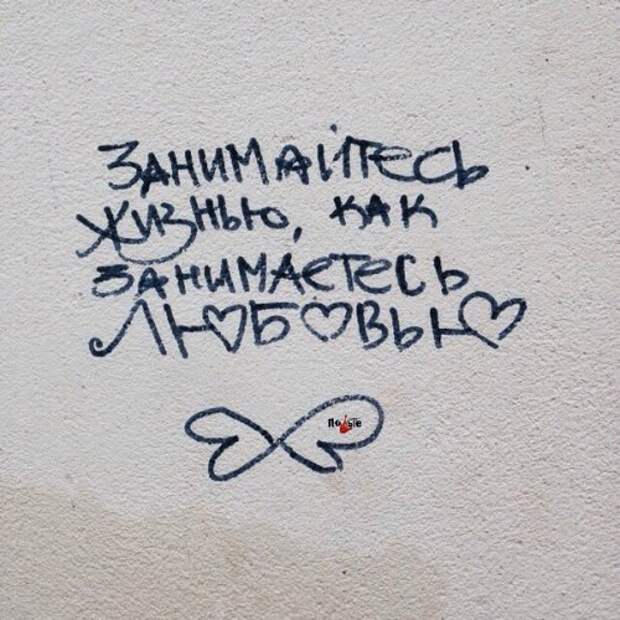 ЗАНИМАЙТЕСЬ
ЖИЗНЬЮ, КАК
ЗАНИМАЕТЕСЬ
ЛЮБОВЬЮ